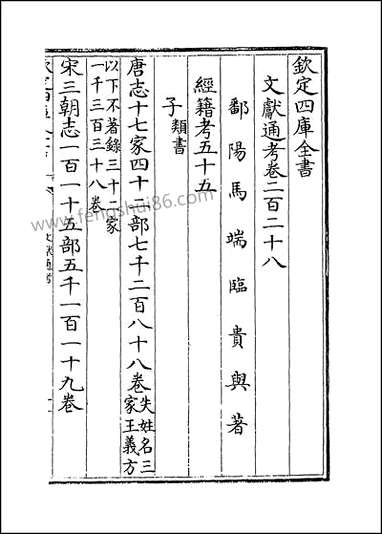 欽定四庫全書
文獻通考卷二百二十八
鄱陽馬端臨貴與著
經籍考五十五
子類書
唐志十七家四十二部七千二百八十八卷失姓名三家王義方
以下不著錄三十二家
一千三百三十八卷
宋三朝志一百一十五部五千一百一十九卷
文獻通考
www.fengshui86.com